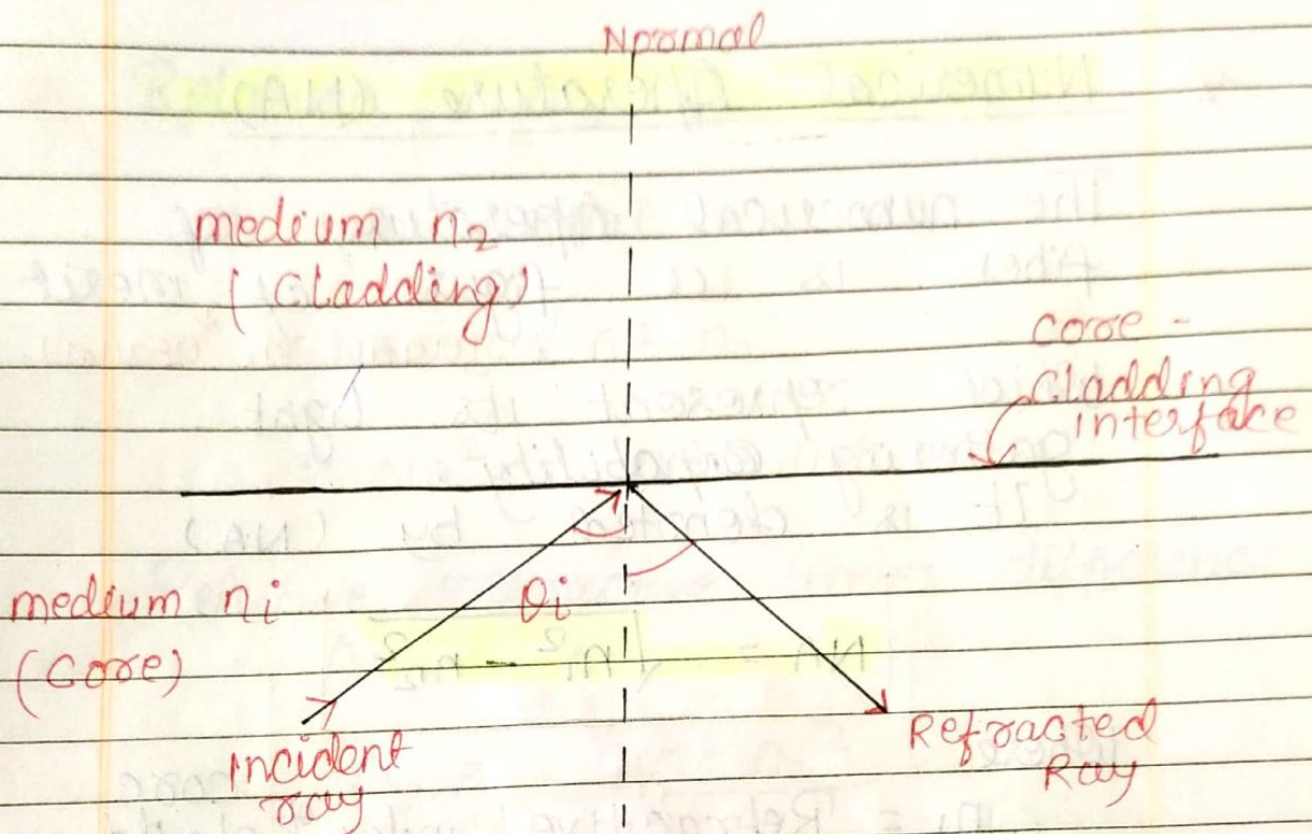 Npomal
medium n₂
(Cladding)
core -
Cladding
interface
medium ni
(Core)
θi
Incident
ray
Refracted
Ray